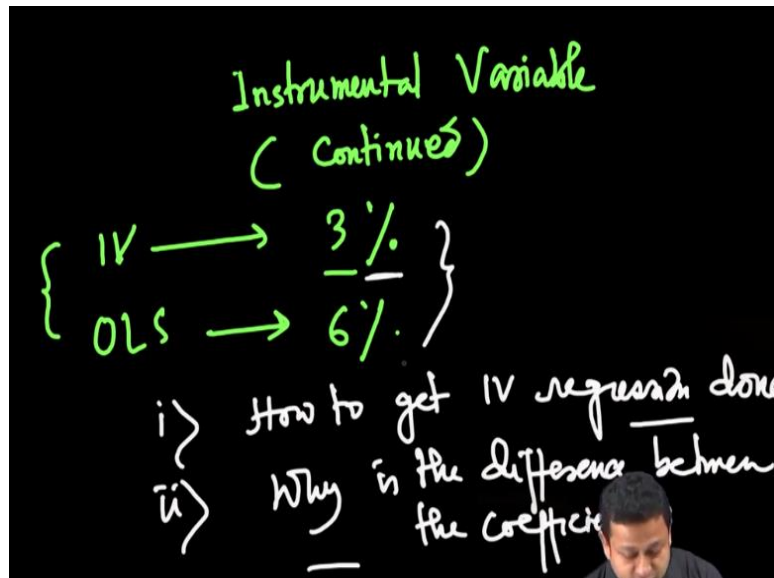 Instrumental Variable
(Continued)
IV → 3%
OLS → 6%.
i> How to get IV regression done
ii> Why is the difference between
the coeffici